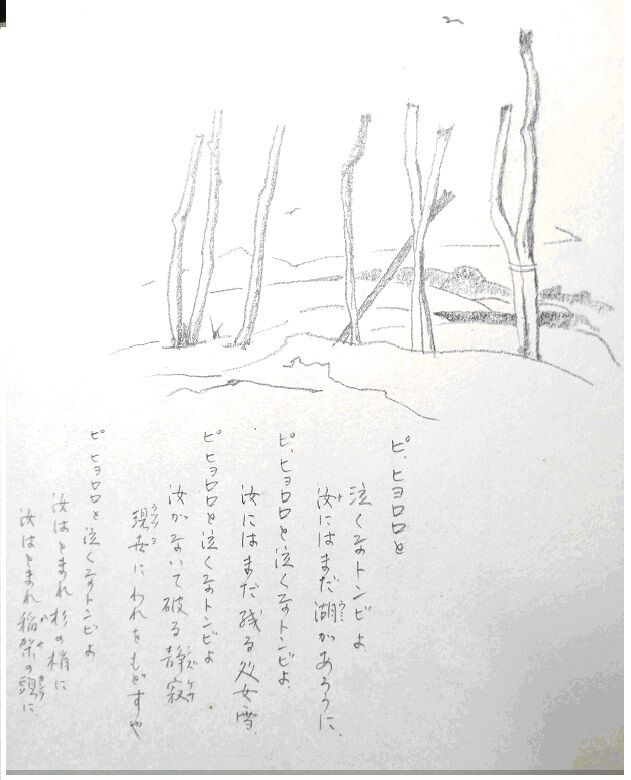 ピ、ヒョロロと
泣くなトンビよ
汝にはまだ湖があろうに、
ピ、ヒョロロと泣くなトンビよ、
汝にはまだ残る処女雪、
ピ ヒョロロと泣くなトンビよ
汝がないて破る静寂
現世にわれをもどすや
ピ ヒョロロと泣くなトンビよ
汝はとまれ杉の梢に
汝はとまれ稲架の頭に、